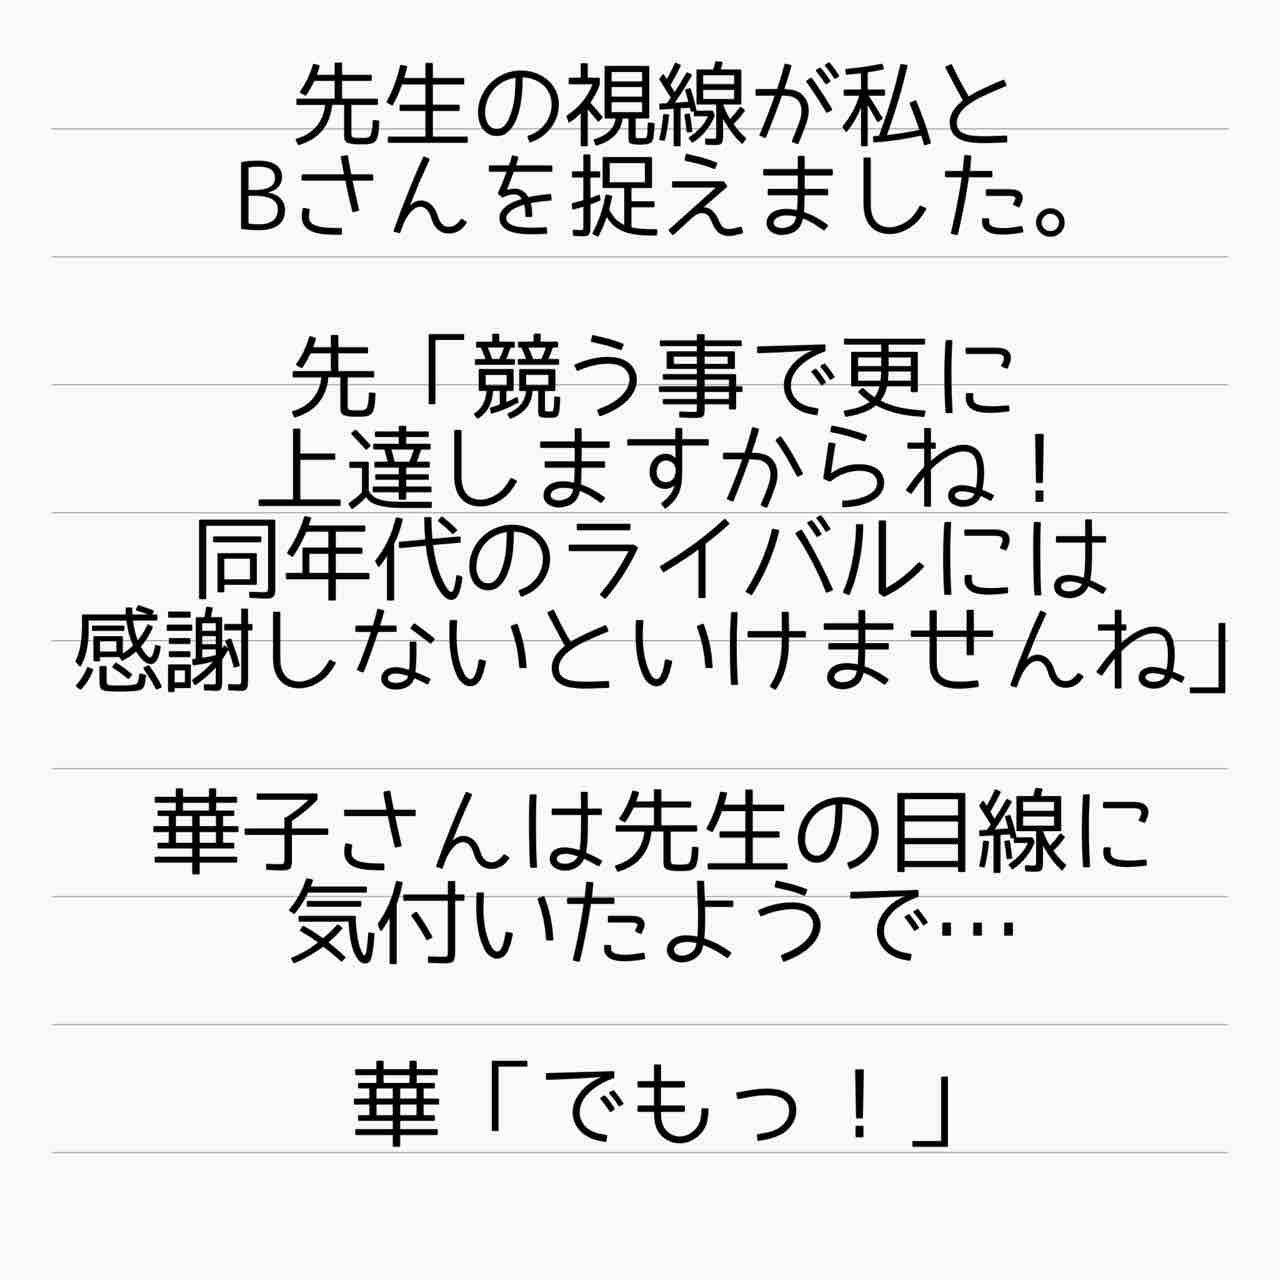 先生の視線が私と
Bさんを捉えました。
先「競う事で更に
上達しますからね！
同年代のライバルには
感謝しないといけませんね」
華子さんは先生の目線に
気付いたようで…
華「でもっ！」